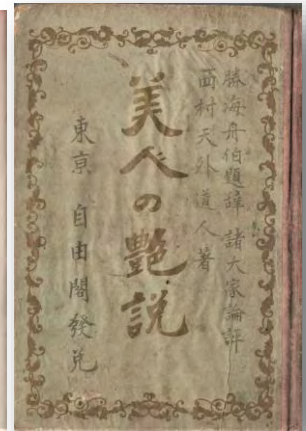 勝海舟伯題辞 諸大家論評
西村天外道人著
美人の艶説
東京 自由閣發兌